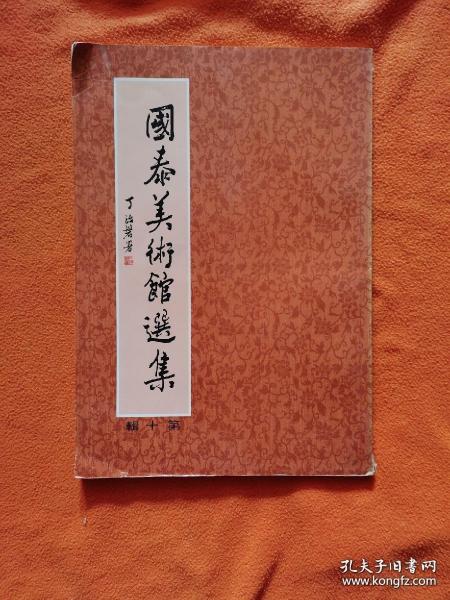 國泰美術館選集
丁治磐署
第十輯
孔夫子旧书网
www.kongfz.com